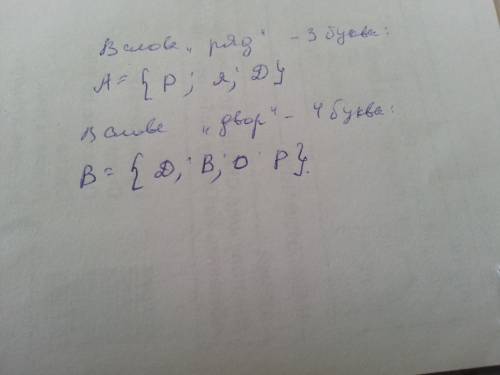 В слове „ряд" - 3 буква:
A = { Р; Я; Д}
В слове „двор" - 4 буква:
B = { Д; В; О Р}.